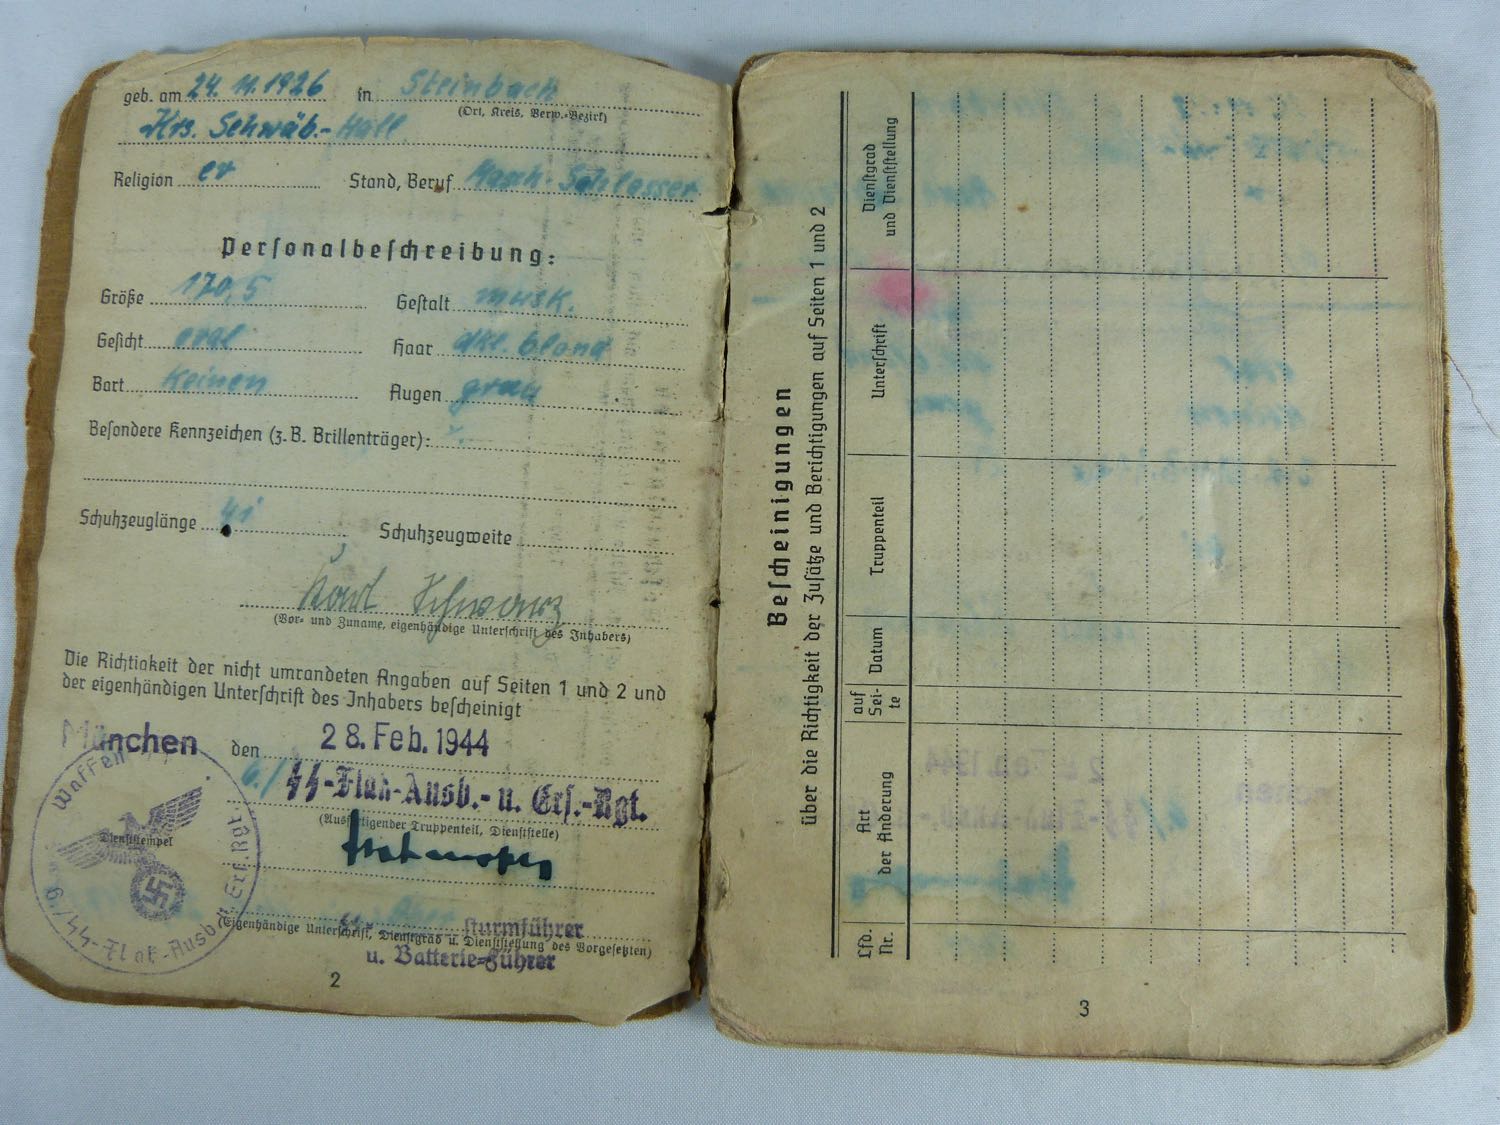 geb. am 24. 11. 1926 in Steinbach
(Ort, Kreis, Verw.-Bezirk)
Krs. Schwäb.-Hall
Religion ev Stand, Beruf Masch.-Schlosser
Personalbeschreibung:
Größe 170,5 Gestalt musk.
Gesicht oval Haar dkl. blond
Bart keinen Augen grau
Besondere Kennzeichen (z. B. Brillenträger):
Schuhzeuglänge 41 Schuhzeugweite
Schwarz
(Vor- und Zuname, eigenhändige Unterschrift des Inhabers)
Die Richtigkeit der nicht umrandeten Angaben auf Seiten 1 und 2 und
der eigenhändigen Unterschrift des Inhabers bescheinigt
München den 28. Feb. 1944
6./ SS-Flak-Ausb.- u. Ers.-Rgt.
(Ausfertigender Truppenteil, Dienststelle)
Waffen
Dienststempel
6./SS-Flak-Ausb. u. Ers. Rgt.
sturmführer
(Eigenhändige Unterschrift, Dienstgrad u. Dienststellung des Vorgesetzten)
u. Batterie-Führer
2
Bescheinigungen
über die Richtigkeit der Zusätze und Berichtigungen auf Seiten 1 und 2
Lfd. Nr.
Art der Änderung
auf Sei-te
Datum
Truppenteil
Unterschrift
Dienstgrad und Dienststellung
3